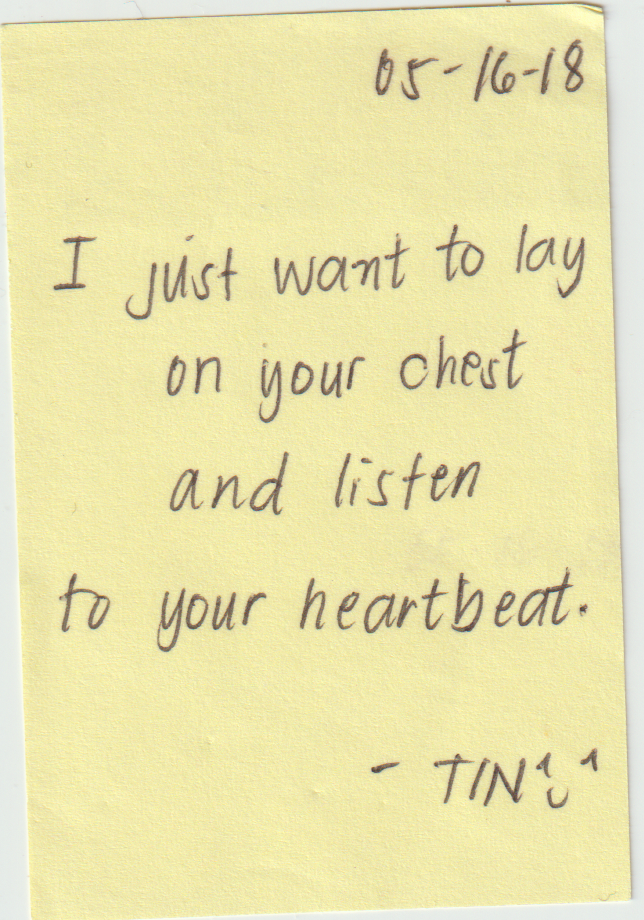 05-16-18
I just want to lay
on your chest
and listen
to your heartbeat.
- TIN